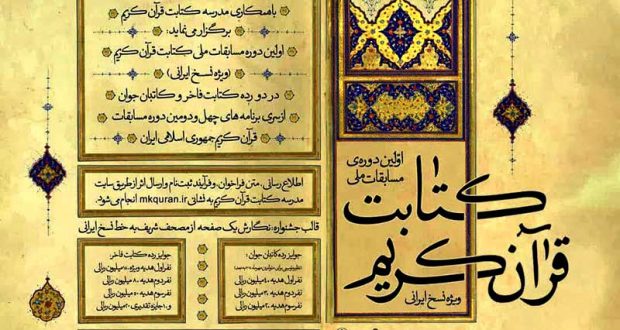 اولین دوره‌ی
مسابقات ملی
کتابت
قرآن کریم
ویژه نسخ ایرانی
باهمکاری مدرسه کتابت قرآن کریم
برگزار می نماید:
اولین دوره مسابقات ملی کتابت قرآن کریم
(ویژه نسخ ایرانی)
در دو رده کتابت فاخر و کاتبان جوان
از سری برنامه های چهل و دومین دوره مسابقات
قرآن کریم جمهوری اسلامی ایران
اطلاع رسانی، متن فراخوان، و فرآیند ثبت نام و ارسال اثر از طریق سایت
مدرسه کتابت قرآن کریم به نشانی mkquran.ir انجام می شود.
قالب جشنواره: نگارش یک صفحه از مصحف شریف به خط نسخ ایرانی
جوایز رده کاتبان جوان:
نفر اول هدیه
میلیون ریالی
نفر دوم هدیه
میلیون ریالی
نفر سوم هدیه
میلیون ریالی
جوایز رده کتابت فاخر:
نفر اول هدیه ویژه
میلیون ریالی
نفر دوم هدیه
میلیون ریالی
نفر سوم هدیه
میلیون ریالی
و ۱۰ جایزه تقدیری
میلیون ریالی